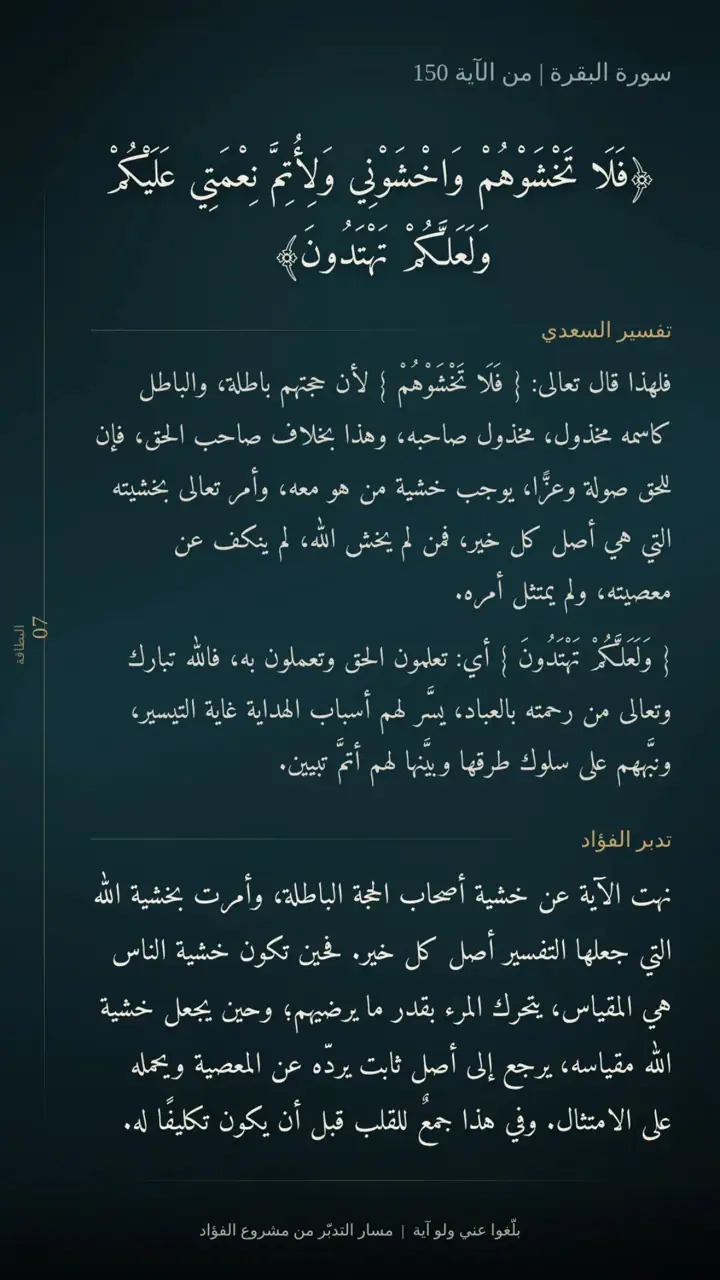 سورة البقرة | من الآية 150
﴿فَلَا تَخْشَوْهُمْ وَاخْشَوْنِي وَلِأُتِمَّ نِعْمَتِي عَلَيْكُمْ
وَلَعَلَّكُمْ تَهْتَدُونَ﴾
تفسير السعدي
فلهذا قال تعالى: { فَلَا تَخْشَوْهُمْ } لأن حجتهم باطلة، والباطل
كاسمه مخذول، مخذول صاحبه، وهذا بخلاف صاحب الحق، فإن
للحق صولة وعزًّا، يوجب خشية من هو معه، وأمر تعالى بخشيته
التي هي أصل كل خير، فمن لم يخش الله، لم ينكف عن
معصيته، ولم يمتثل أمره.
{ وَلَعَلَّكُمْ تَهْتَدُونَ } أي: تعلمون الحق وتعملون به، فالله تبارك
وتعالى من رحمته بالعباد، يسَّر لهم أسباب الهداية غاية التيسير،
ونبَّههم على سلوك طرقها وبيَّنها لهم أتمَّ تبيين.
تدبر الفؤاد
نهت الآية عن خشية أصحاب الحجة الباطلة، وأمرت بخشية الله
التي جعلها التفسير أصل كل خير. فحين تكون خشية الناس
هي المقياس، يتحرك المرء بقدر ما يرضيهم؛ وحين يجعل خشية
الله مقياسه، يرجع إلى أصل ثابت يردّه عن المعصية ويحمله
على الامتثال. وفي هذا جمعٌ للقلب قبل أن يكون تكليفًا له.
البطاقة
07
بلّغوا عني ولو آية | مسار التدبّر من مشروع الفؤاد